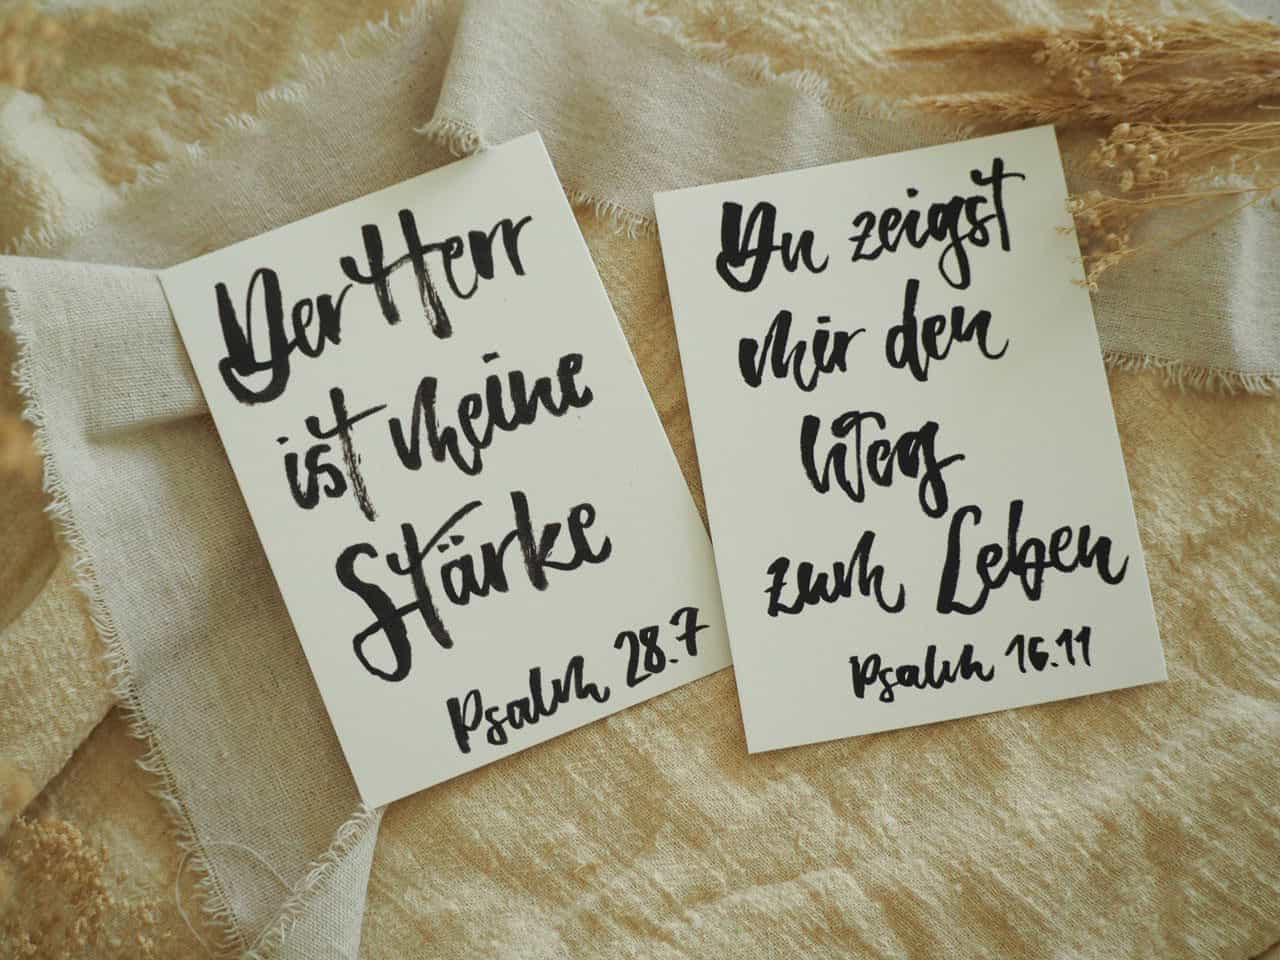 Der Herr
ist meine
Stärke
Psalm 28.7
Du zeigst
mir den
Weg
zum Leben
Psalm 16.11